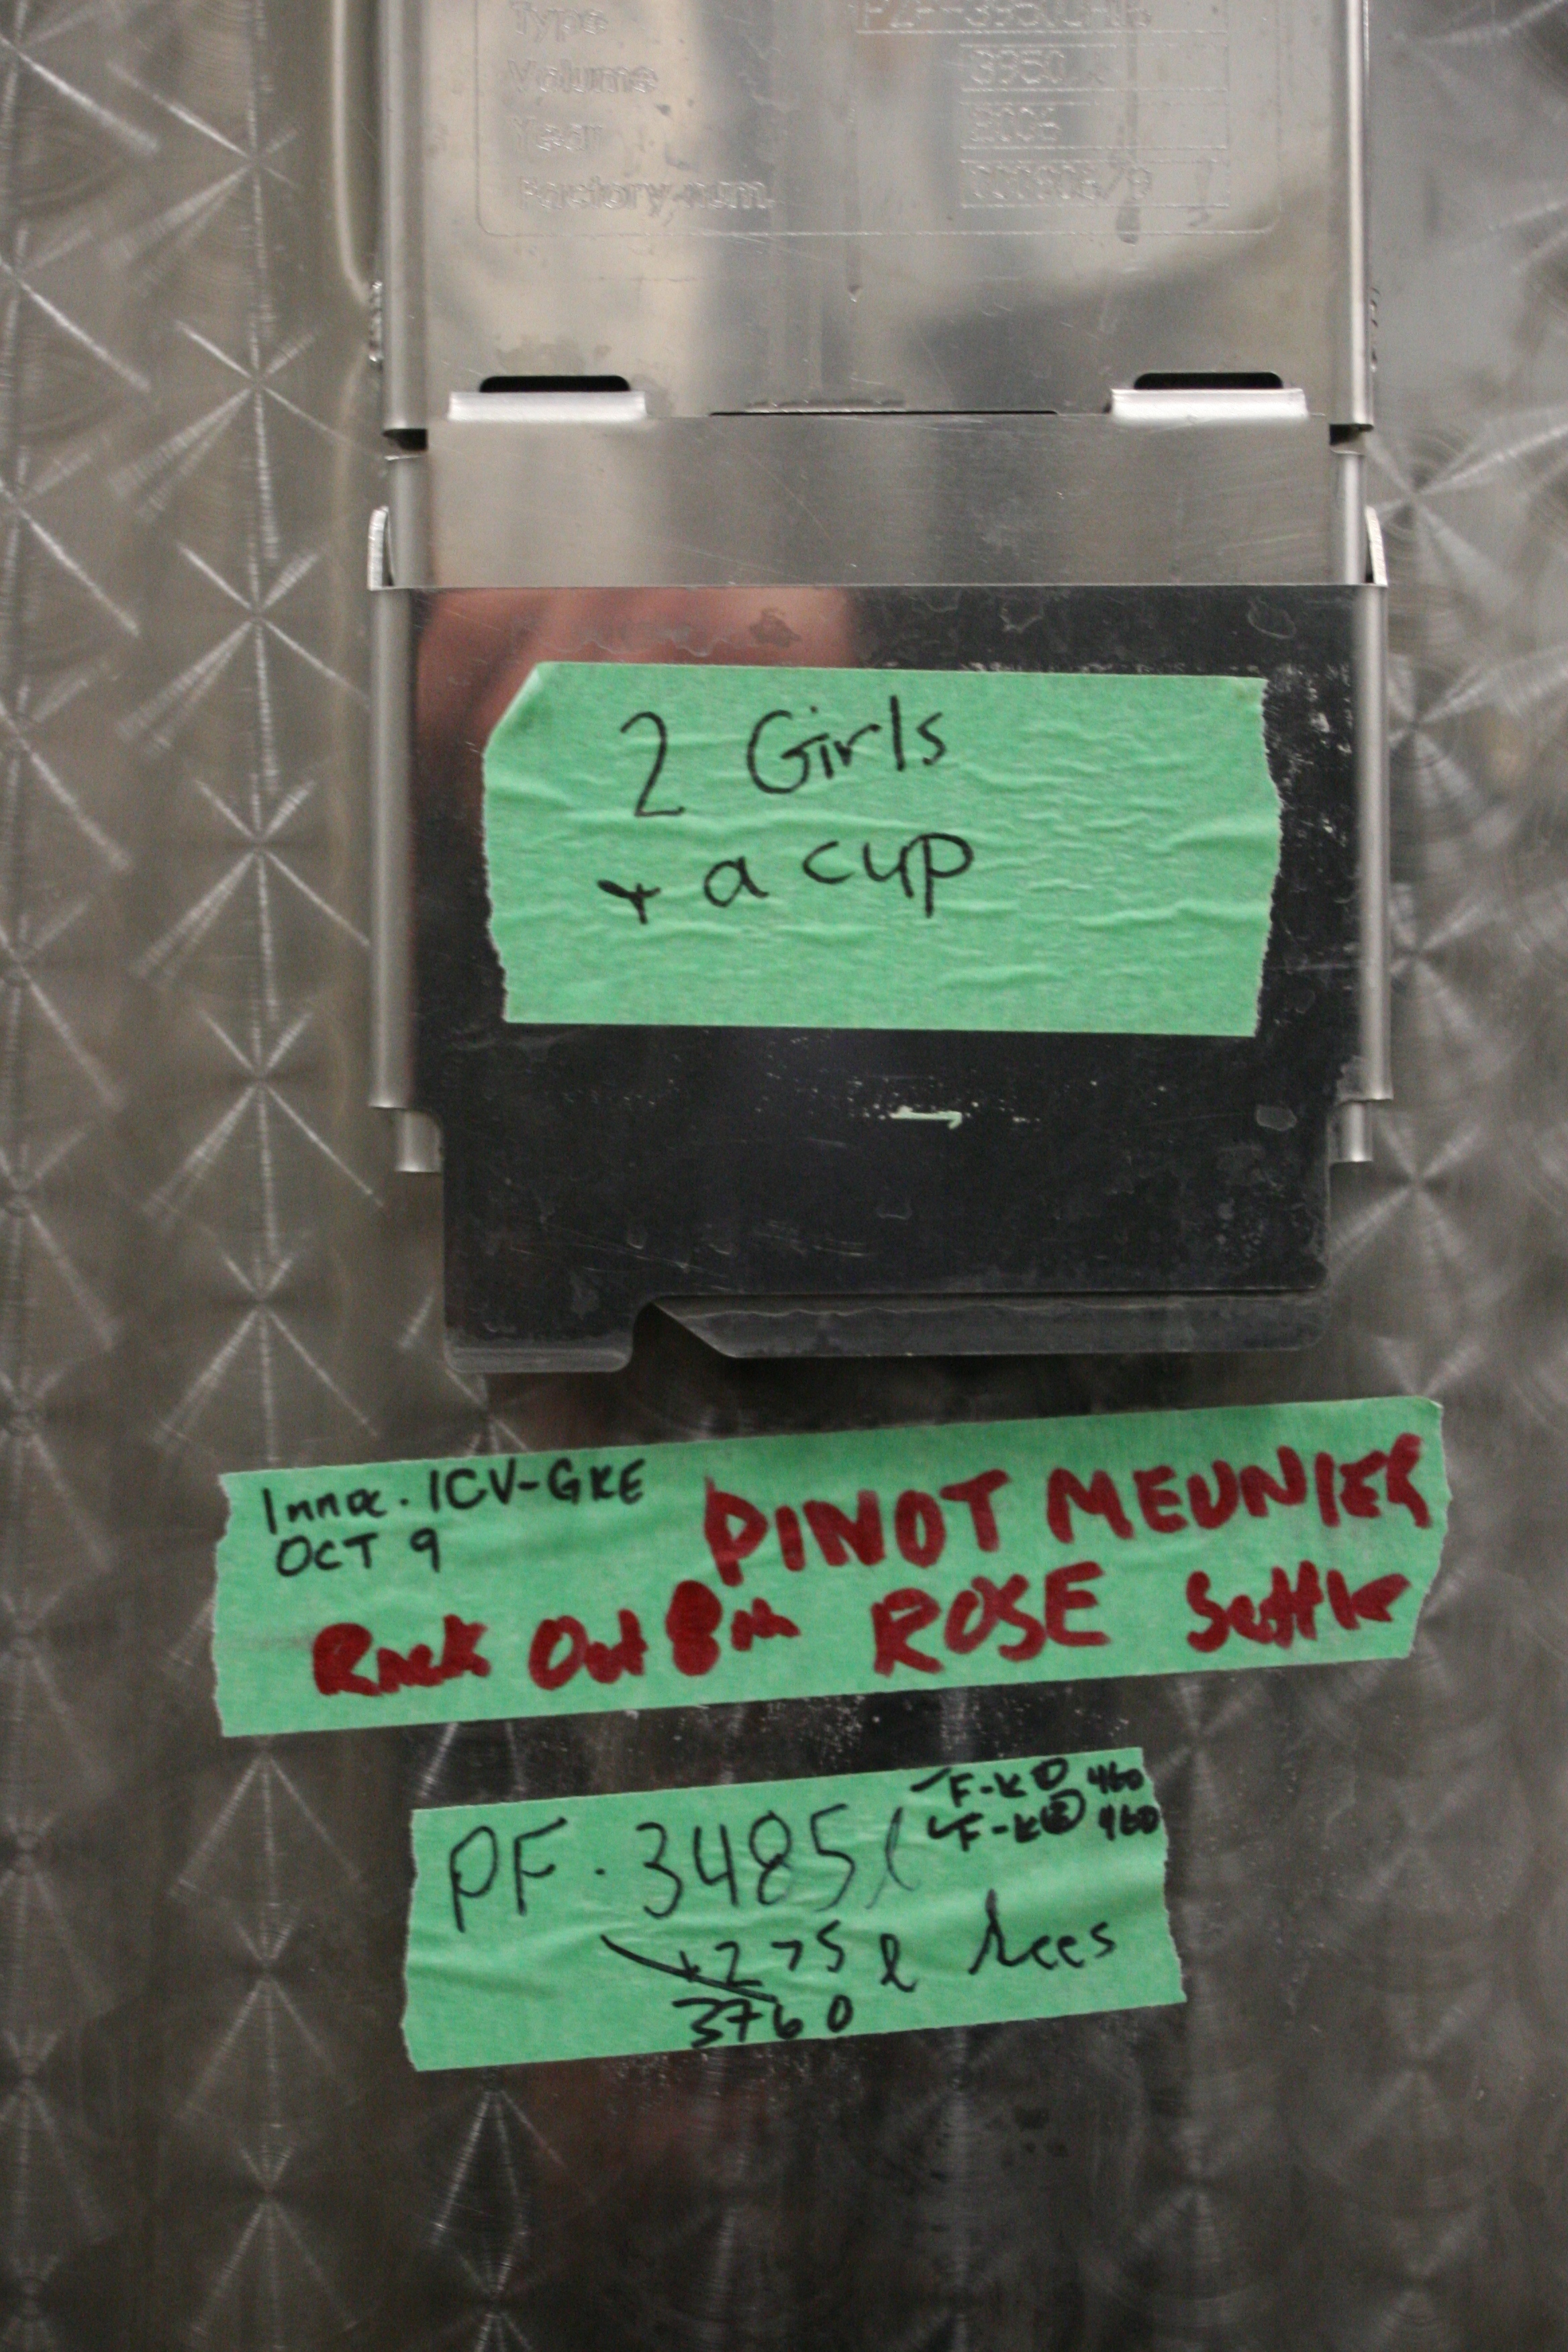 Type
Volume 3950
Year 2006
Factory num.
2 Girls
+ a cup
Innoc. ICV-GRE PINOT MEUNIER
OCT 9
Rack Oct 8th ROSE Settle
F-K ① 460
PF. 3485 l F-K ② 460
+275 l lees
3760